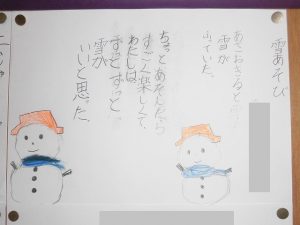 雪あそび
あさおきると、
雪が
ふっていた。
ちょっとあそんだら
すごく楽しくて、
わたしは、
ずっとずっと
雪が
いいと思った。